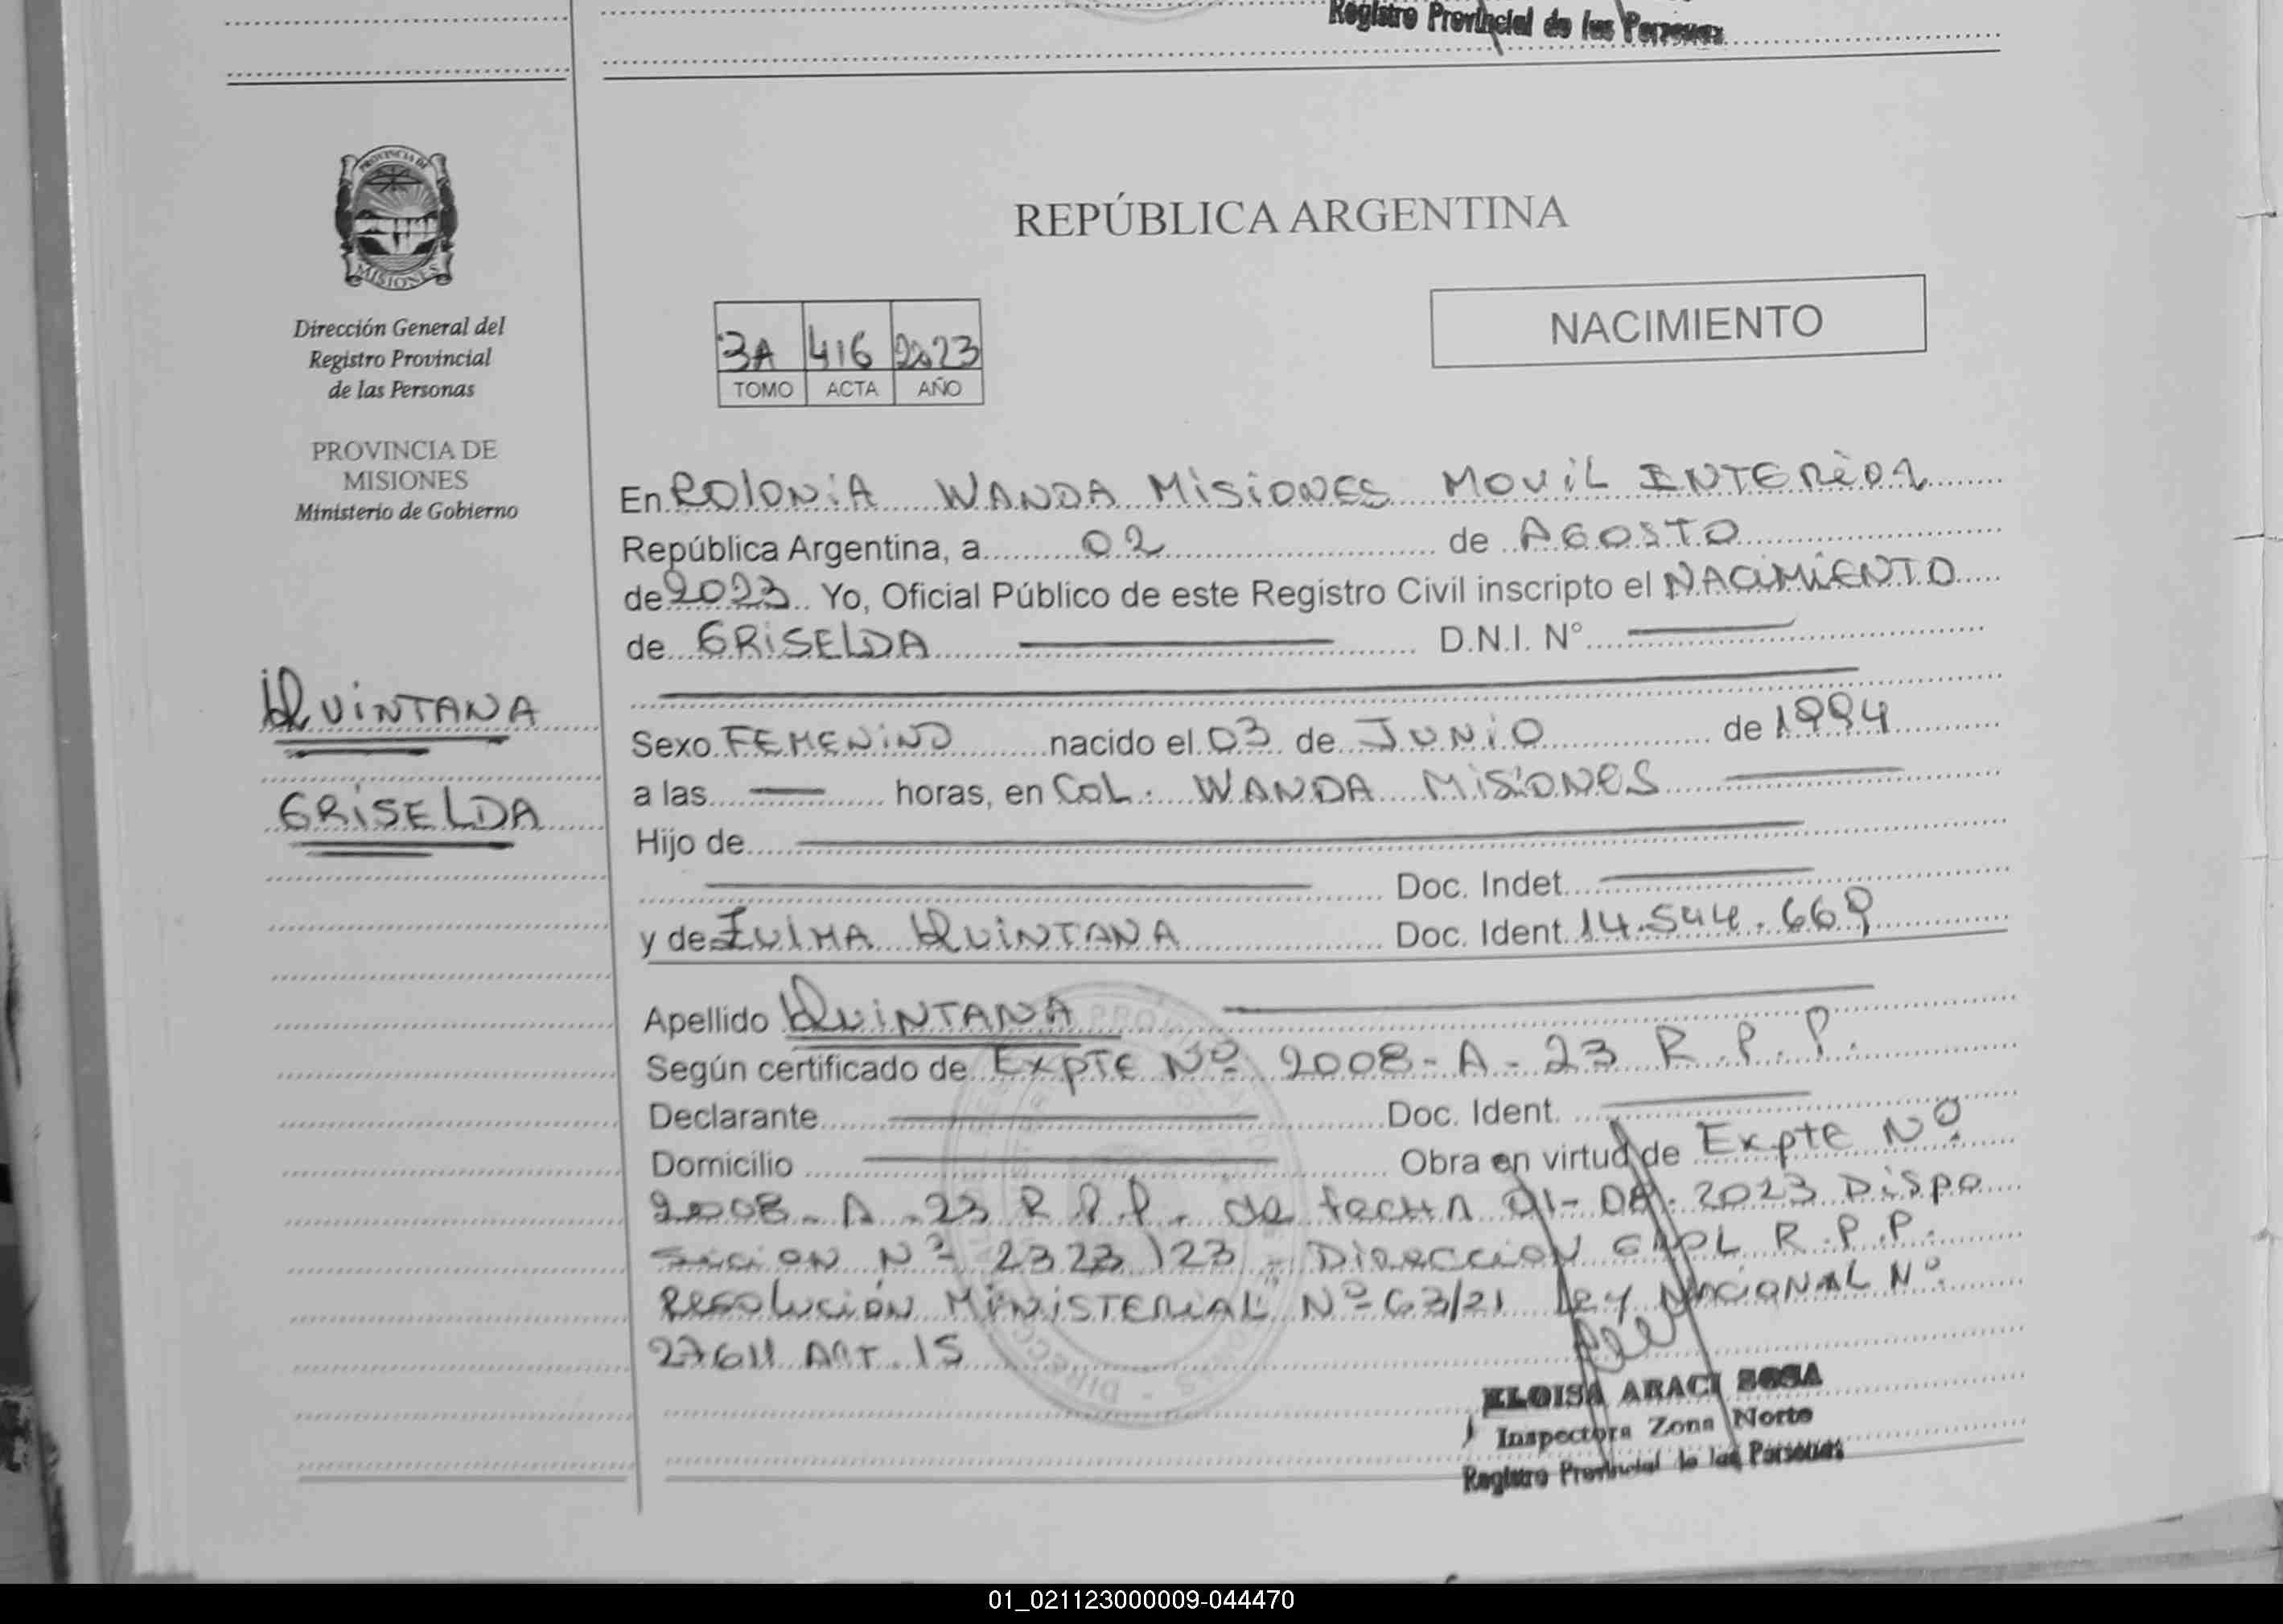 Registro Provincial de las Personas
PROVINCIA DE
MISIONES
Dirección General del
Registro Provincial
de las Personas
PROVINCIA DE
MISIONES
Ministerio de Gobierno
QUINTANA
GRISELDA
REPÚBLICA ARGENTINA
NACIMIENTO
3A 416 2023
TOMO ACTA AÑO
En COLONIA WANDA MISIONES MOVIL INTERIOR
República Argentina, a 02 de AGOSTO
de 2023 Yo, Oficial Público de este Registro Civil inscripto el NACIMIENTO
de GRISELDA D.N.I. N°
Sexo FEMENINO nacido el 03 de JUNIO de 1994
a las horas, en COL. WANDA MISIONES
Hijo de
Doc. Indet.
y de ZULMA QUINTANA Doc. Ident. 14.544.669
Apellido QUINTANA
Según certificado de EXPTE Nº 2008-A-23 R.P.P.
Declarante Doc. Ident.
Domicilio Obra en virtud de Expte Nº
2008-A-23 R.P.P. de fecha 01-08-2023 Dispo
sicion Nº 2323/23 - Dirección GRAL R.P.P.
Resolución MINISTERIAL Nº 63/21 Ley NACIONAL Nº
27611 ART. 15
ELOISA ARACI SOSA
Inspectora Zona Norte
Registro Provincial de las Personas
01_021123000009-044470